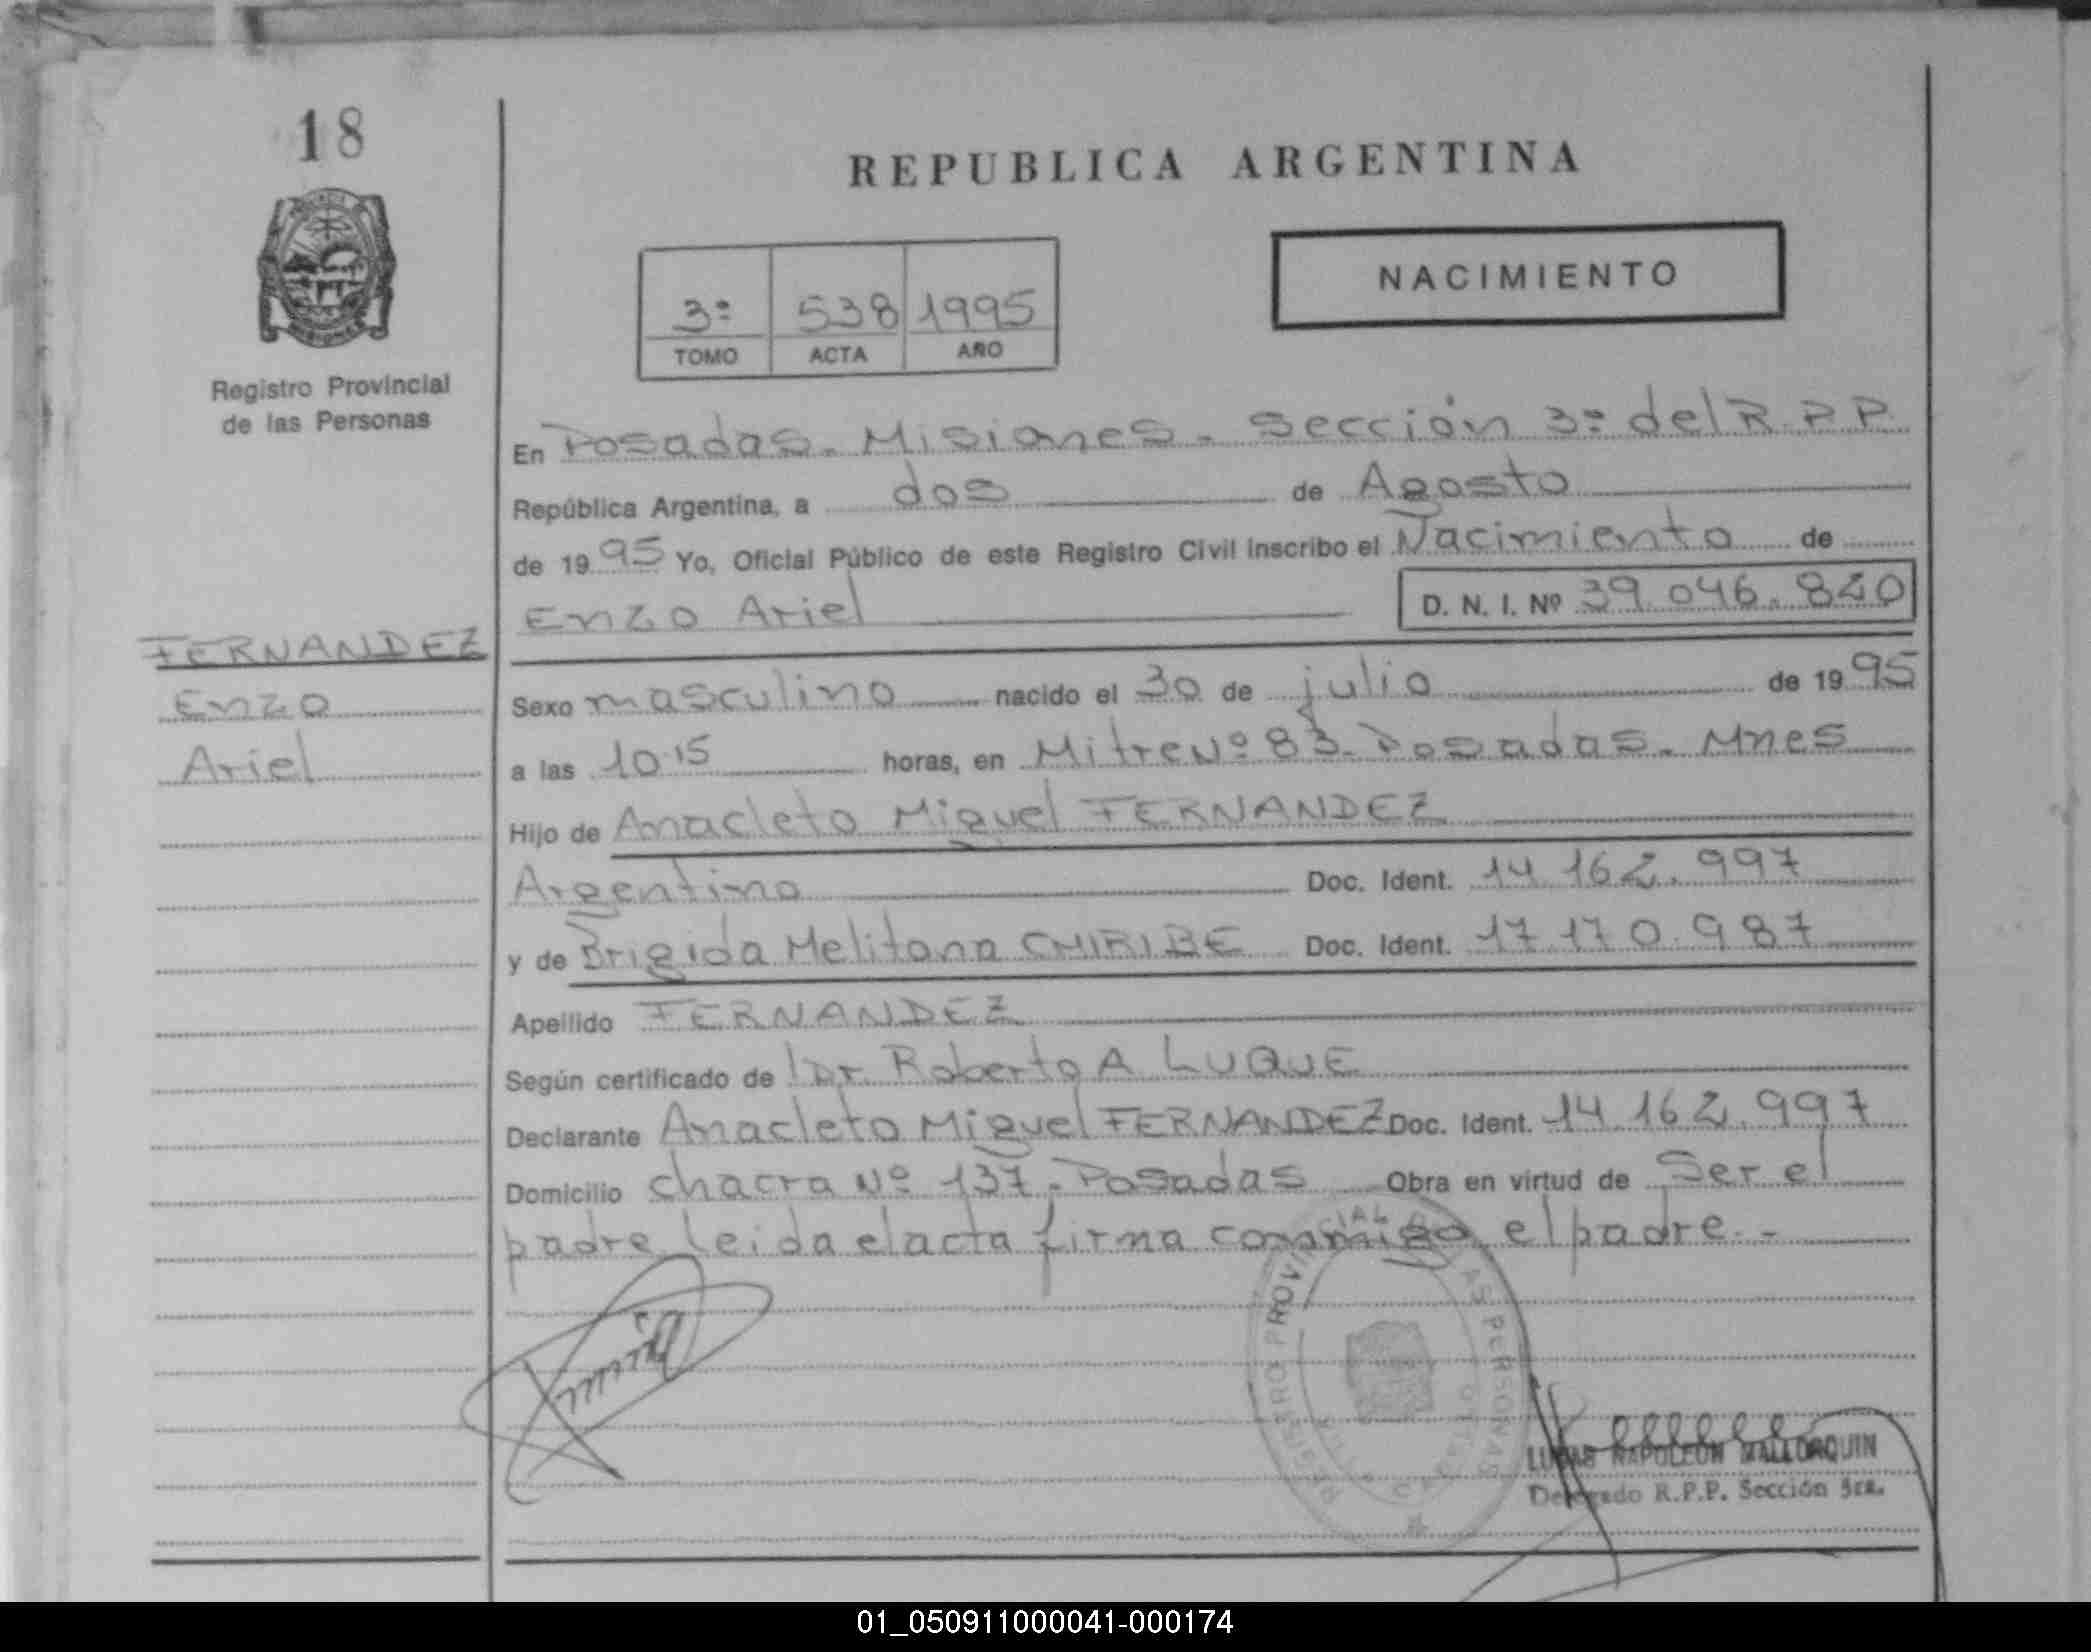 18
Registro Provincial
de las Personas
FERNANDEZ
Enzo
Ariel
REPUBLICA ARGENTINA
3º 538 1995
TOMO ACTA AÑO
NACIMIENTO
En Posadas. Misiones. Sección 3º del R.P.P.
República Argentina, a dos de Agosto
de 1995 Yo, Oficial Público de este Registro Civil inscribo el Nacimiento de
Enzo Ariel D. N. I. Nº 39.046.820
Sexo masculino nacido el 30 de julio de 1995
a las 10.15 horas, en Mitre Nº 83. Posadas. Mnes
Hijo de Anacleto Miguel FERNANDEZ
Argentino Doc. Ident. 14.162.997
y de Brigida Melitona CHIRIBE Doc. Ident. 17.170.987
Apellido FERNANDEZ
Según certificado de Dr. Roberto A LUQUE
Declarante Anacleto Miguel FERNANDEZ Doc. Ident. 14.162.997
Domicilio chacra Nº 137. Posadas Obra en virtud de Ser el
padre leida el acta firma conmigo el padre. -
REGISTRO PROVINCIAL DE LAS PERSONAS
LUCAS NAPOLEON MALLORQUIN
Delegado R.P.P. Sección 3ra.
01_050911000041-000174